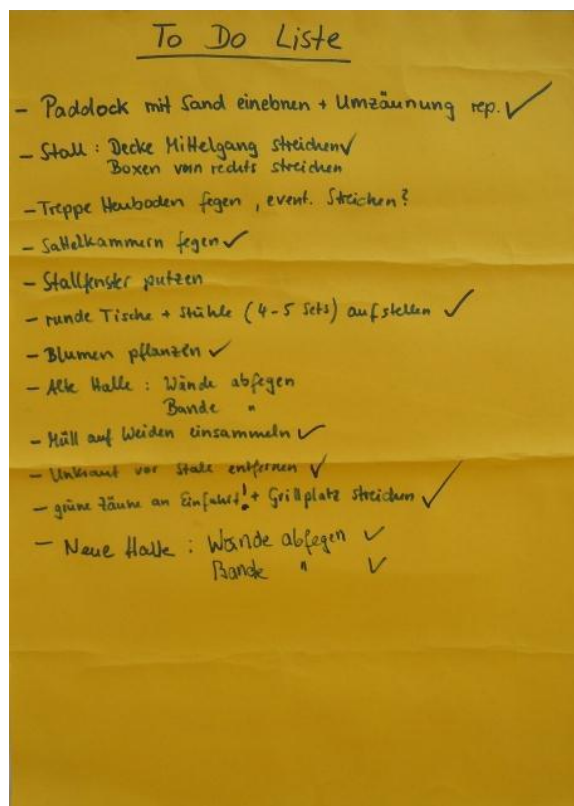 To Do Liste
- Paddock mit Sand einebnen + Umzäunung rep. ✓
- Stall : Decke Mittelgang streichen ✓
Boxen vorn rechts streichen
- Treppe Heuboden fegen, event. Streichen?
- Sattelkammern fegen ✓
- Stallfenster putzen
- runde Tische + Stühle (4-5 Sets) aufstellen ✓
- Blumen pflanzen ✓
- Alte Halle : Wände abfegen
Bande "
- Müll auf Weiden einsammeln ✓
- Unkraut vor Stall entfernen ✓
- grüne Zäune an Einfahrt! + Grillplatz streichen ✓
- Neue Halle : Wände abfegen ✓
Bande " ✓